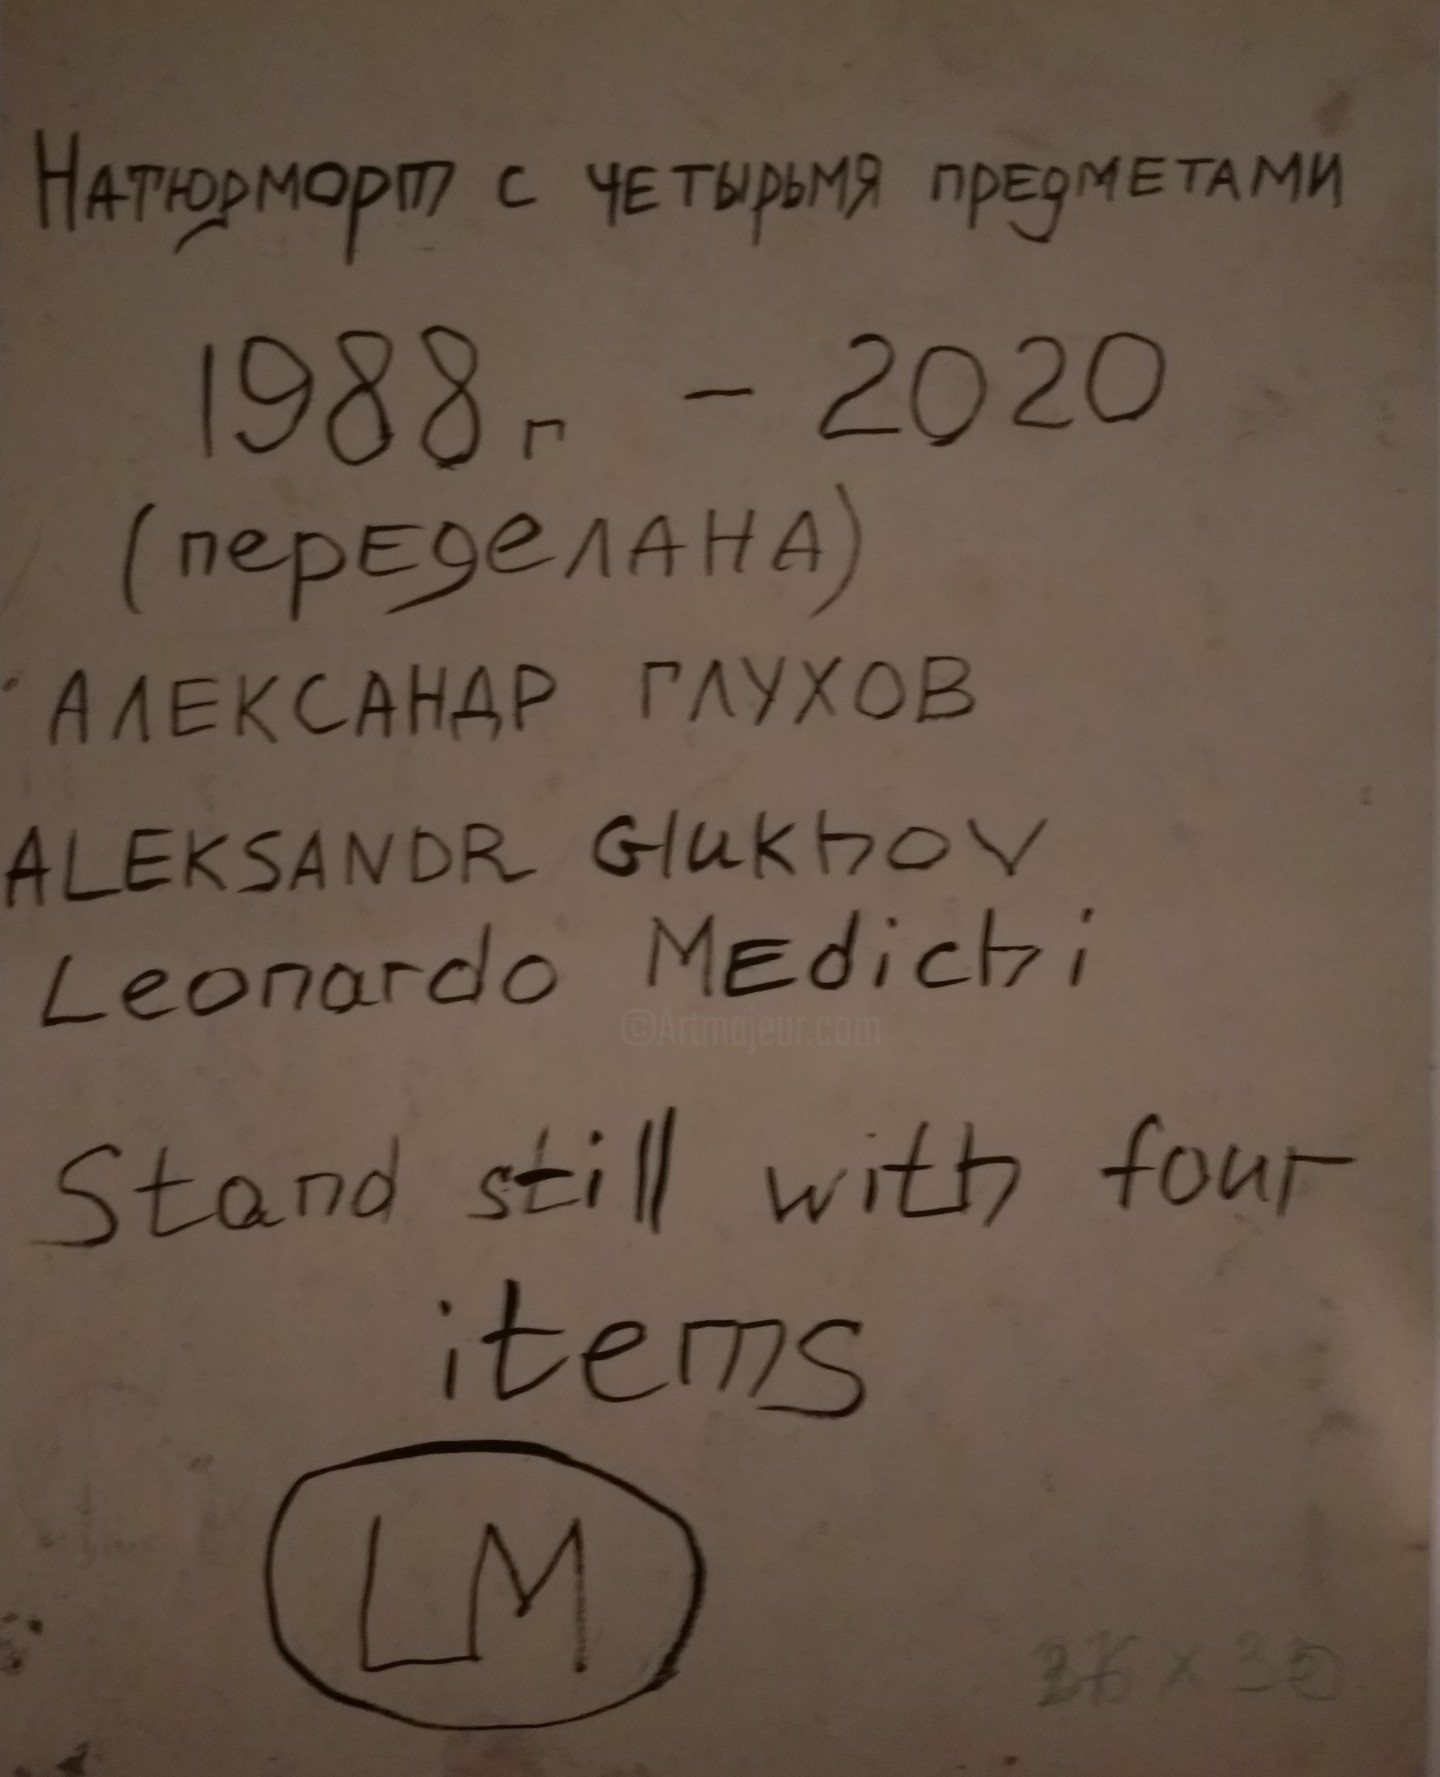 Натюрморт с четырьмя предметами
1988 г - 2020
(переделана)
АЛЕКСАНДР ГЛУХОВ
ALEKSANDR Glukhov
Leonardo MEdichi
©Artmajeur.com
Stand still with four
items
LM
x 30